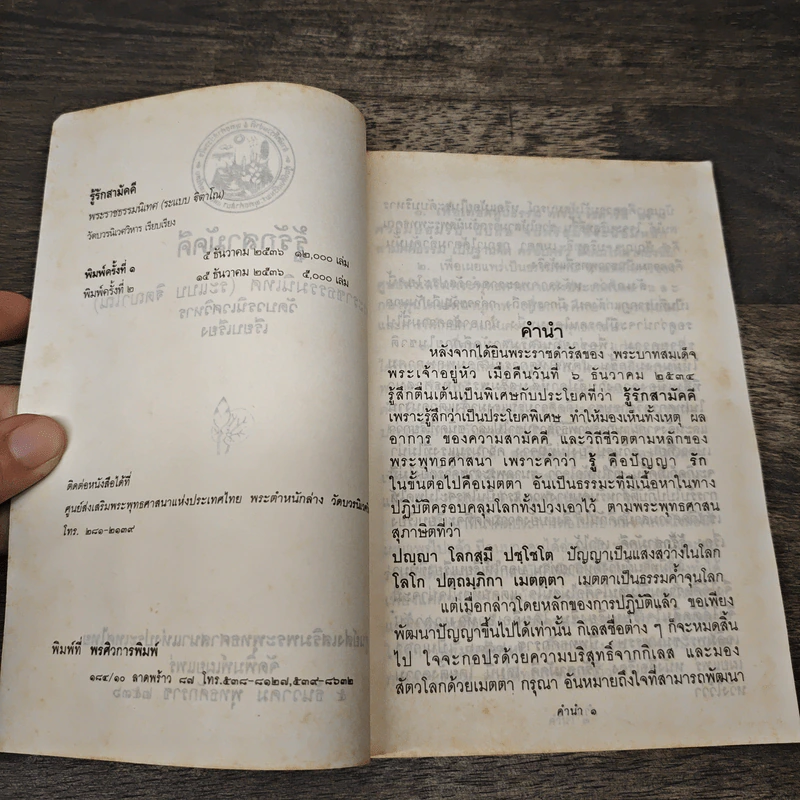 รู้รักสามัคคี
พระราชธรรมนิเทศ (ระแบบ ฐิตญาโณ)
วัดบวรนิเวศวิหาร เรียบเรียง
พิมพ์ครั้งที่ ๑ ๕ ธันวาคม ๒๕๓๖ ๑๒,๐๐๐ เล่ม
พิมพ์ครั้งที่ ๒ ๑๕ ธันวาคม ๒๕๓๖ ๕,๐๐๐ เล่ม
ติดต่อหนังสือได้ที่
ศูนย์ส่งเสริมพระพุทธศาสนาแห่งประเทศไทย พระตำหนักล่าง
โทร. ๒๘๑-๒๑๓๙
พิมพ์ที่ พรศิวการพิมพ์
๑๘๔/๑๐ ลาดพร้าว ๘๗ โทร.๕๓๘-๘๑๒๗,๕๓๙-๘๖๓๒
คำนำ
หลังจากได้ยินพระราชดำรัสของ พระบาทสมเด็จ
พระเจ้าอยู่หัว เมื่อคืนวันที่ ๖ ธันวาคม ๒๕๓๔
รู้สึกตื่นเต้นเป็นพิเศษกับประโยคที่ว่า รู้รักสามัคคี
เพราะรู้สึกว่าเป็นประโยคพิเศษ ทำให้มองเห็นทั้งเหตุ ผล
อาการ ของความสามัคคี และวิถีชีวิตตามหลักของ
พระพุทธศาสนา เพราะคำว่า รู้ คือปัญญา รัก
ในขั้นต่อไปคือเมตตา อันเป็นธรรมะที่มีเนื้อหาในทาง
ปฏิบัติครอบคลุมโลกทั้งปวงเอาไว้ ตามพระพุทธศาสน
สุภาษิตที่ว่า
ปญฺญา โลกสฺมึ ปชฺโชโต ปัญญาเป็นแสงสว่างในโลก
โลโก ปตฺถมฺภิกา เมตตฺตา เมตตาเป็นธรรมค้ำจุนโลก
แต่เมื่อกล่าวโดยหลักของการปฏิบัติแล้ว ขอเพียง
พัฒนาปัญญาขึ้นไปได้เท่านั้น กิเลสชื่อต่าง ๆ ก็จะหมดสิ้น
ไป ใจจะกอปรด้วยความบริสุทธิ์จากกิเลส และมอง
สัตวโลกด้วยเมตตา กรุณา อันหมายถึงใจที่สามารถพัฒนา
คำนำ ๑